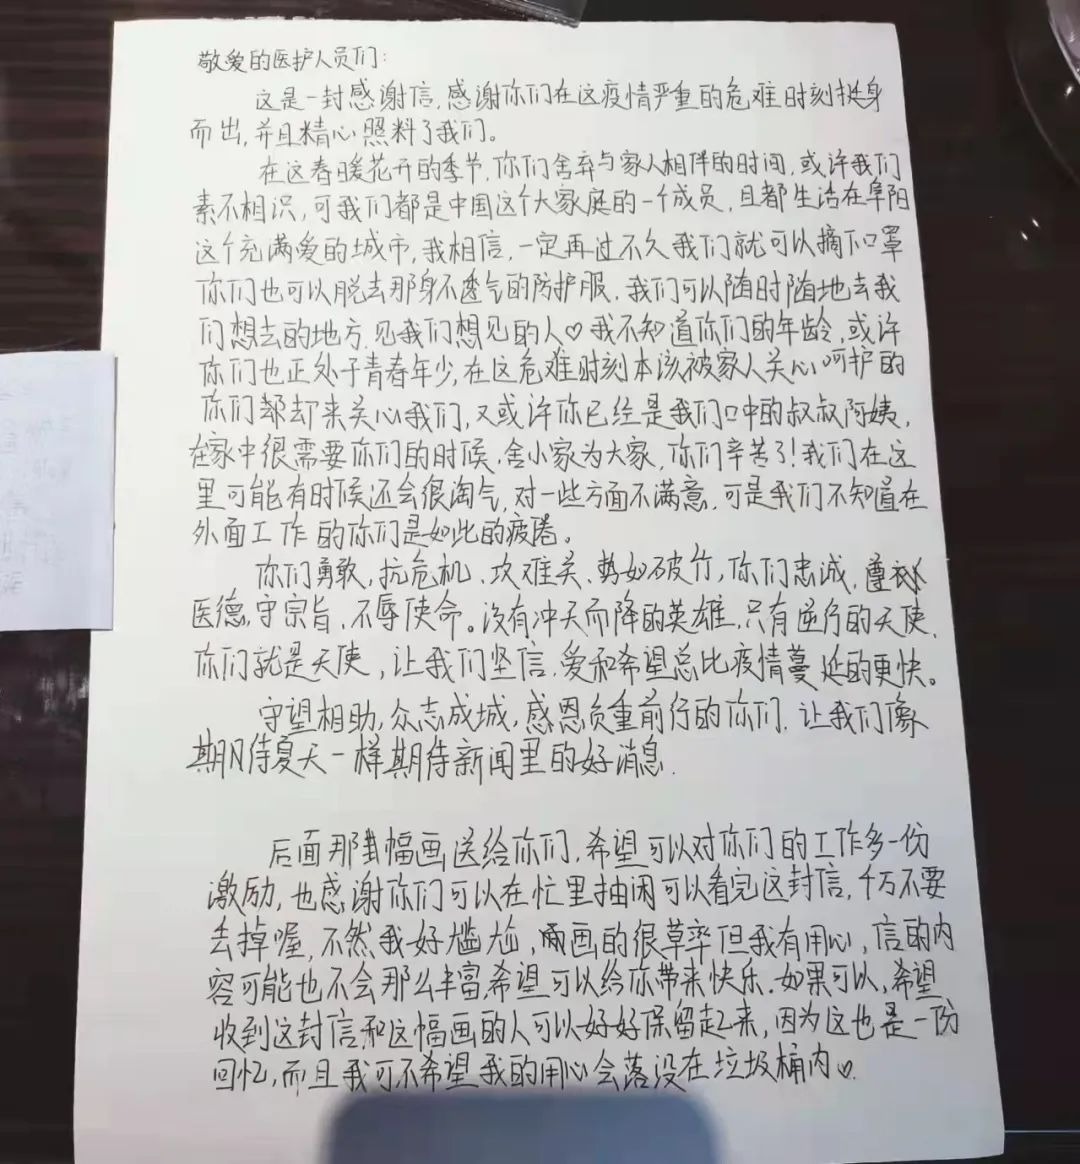 敬爱的医护人员们：
这是一封感谢信，感谢你们在这疫情严重的危难时刻挺身
而出，并且精心照料了我们。
在这春暖花开的季节，你们舍弃与家人相伴的时间，或许我们
素不相识，可我们都是中国这个大家庭的一个成员，且都生活在阜阳
这个充满爱的城市，我相信，一定再过不久我们就可以摘下口罩
你们也可以脱去那身不透气的防护服，我们可以随时随地去我
们想去的地方，见我们想见的人♡我不知道你们的年龄，或许
你们也正处于青春年少，在这危难时刻本该被家人关心呵护的
你们却却来关心我们，又或许你已经是我们口中的叔叔阿姨，
在家中很需要你们的时候，舍小家为大家，你们辛苦了！我们在这
里可能有时候还会很淘气，对一些方面不满意，可是我们不知道在
外面工作的你们是如此的疲倦。
你们勇敢，抗危机、攻难关、势如破竹，你们忠诚，遵
医德，守宗旨，不辱使命。没有冲天而降的英雄，只有逆行的天使，
你们就是天使，让我们坚信，爱和希望总比疫情蔓延的更快。
守望相助，众志成城，感恩负重前行的你们，让我们像
期待夏天一样期待新闻里的好消息.
后面那幅画送给你们，希望可以对你们的工作多一份
激励，也感谢你们可以在忙里抽闲可以看完这封信，千万不要
丢掉喔，不然我好尴尬，画的很草率但我有用心，信的内
容可能也不会那么丰富，希望可以给你带来快乐.如果可以，希望
收到这封信和这幅画的人可以好好保留起来，因为这也是一份
回忆，而且我可不希望我的用心会落没在垃圾桶内♡.